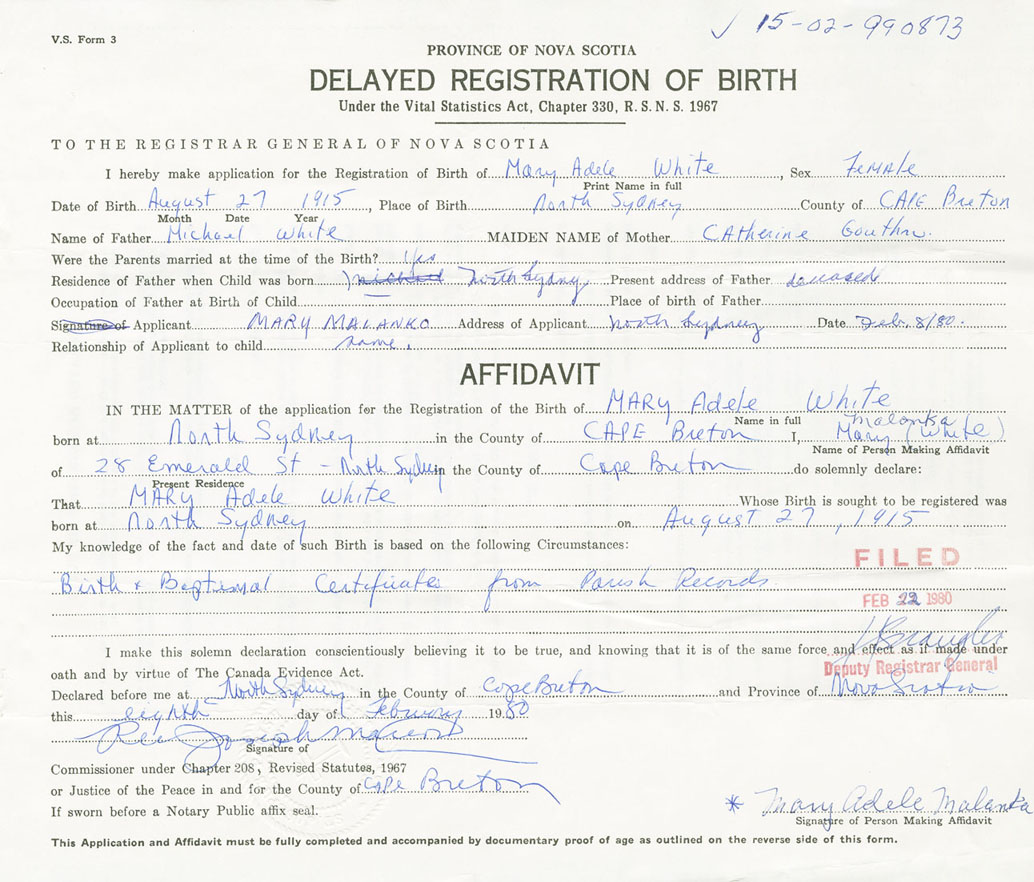 ✓ 15-02-990873
V.S. Form 3
PROVINCE OF NOVA SCOTIA
DELAYED REGISTRATION OF BIRTH
Under the Vital Statistics Act, Chapter 330, R.S.N.S. 1967
TO THE REGISTRAR GENERAL OF NOVA SCOTIA
I hereby make application for the Registration of Birth of Mary Adele White, Sex Female
Print Name in full
Date of Birth August 27 1915, Place of Birth North Sydney County of CAPE Breton
Month Date Year
Name of Father Michael White MAIDEN NAME of Mother CAtherine
Were the Parents married at the time of the Birth? Yes
Residence of Father when Child was born North Sydney Present address of Father deceased
Occupation of Father at Birth of Child Place of birth of Father
Signature of Applicant MARY MALANKO Address of Applicant North Sydney Date Feb. 8/80.
Relationship of Applicant to child same.
AFFIDAVIT
IN THE MATTER of the application for the Registration of the Birth of MARY Adele White
Name in full Malanka
born at North Sydney in the County of CAPE Breton I, Mary (White)
Name of Person Making Affidavit
of 28 Emerald St - North Sydney in the County of Cape Breton do solemnly declare:
Present Residence
That MARY Adele White Whose Birth is sought to be registered was
born at North Sydney on August 27, 1915
My knowledge of the fact and date of such Birth is based on the following Circumstances:
FILED
Birth + Baptismal Certificates from Parish Records.
FEB 22 1980
I make this solemn declaration conscientiously believing it to be true, and knowing that it is of the same force and effect as if made under
oath and by virtue of The Canada Evidence Act.
Deputy Registrar General
Declared before me at North Sydney in the County of Cape Breton and Province of Nova Scotia
this eighth day of February 1980
Rev Joseph
Signature of
Commissioner under Chapter 208, Revised Statutes, 1967
or Justice of the Peace in and for the County of Cape Breton
If sworn before a Notary Public affix seal.
* Mary Adele Malanka
Signature of Person Making Affidavit
This Application and Affidavit must be fully completed and accompanied by documentary proof of age as outlined on the reverse side of this form.